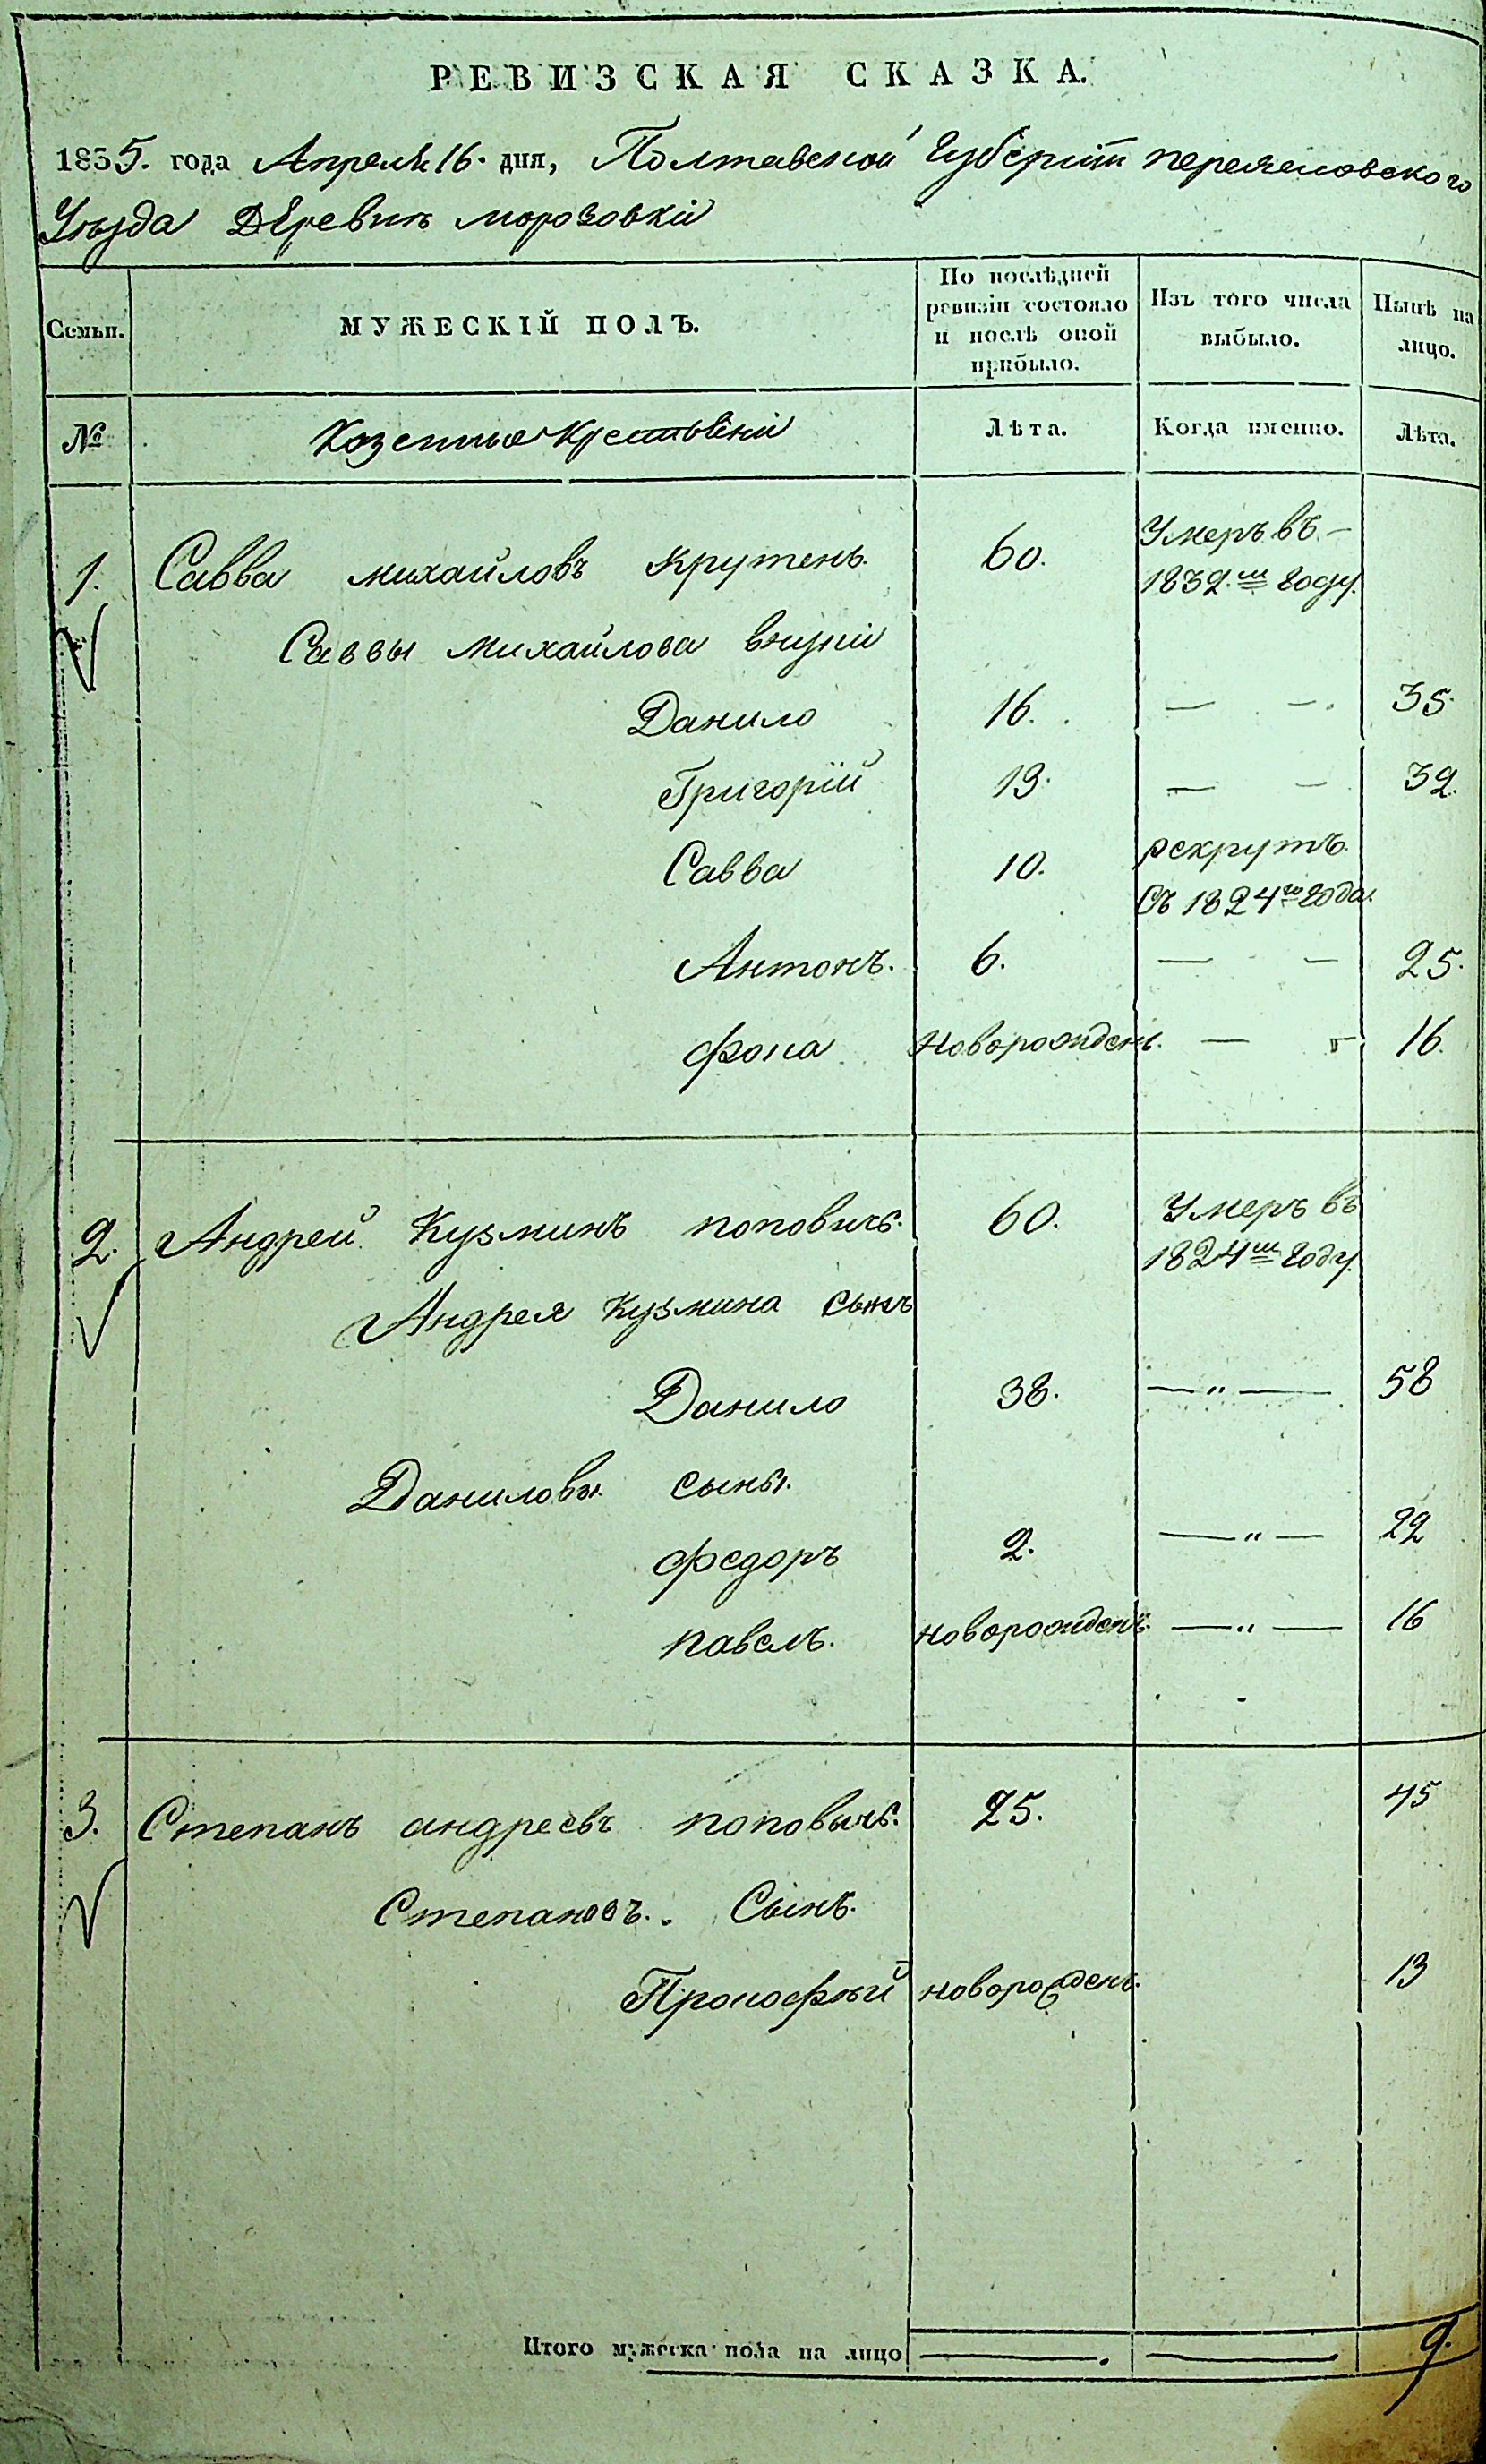 РЕВИЗСКАЯ СКАЗКА.
1835. года Апреля 16. дня, Полтавской Губерніи переяславского
Уѣзда Деревни морозовки
Семьи. МУЖЕСКІЙ ПОЛЪ. По послѣдней ревизіи состояло и послѣ оной прибыло. Изъ того числа выбыло. Нынѣ на лицо.
№ Козенные Крестьяни Лѣта. Когда имянно. Лѣта.
1. Савва михайловъ крутень. 60. Умеръ въ
1832.м году.
Саввы михайлова внуки
Данило 16. — — 35.
Григорій 13. — — 32.
Савва 10. рекрутъ.
Съ 1824го года.
Антонъ. 6. — — 25.
фома Новорожденъ. — — 16.
2. Андрей Кузминъ поповичъ. 60. Умеръ въ
1824м году.
Андрея Кузмина сынъ
Данило 38. — „ — 58
Даниловы сыны.
федоръ 2. — „ — 22
павелъ. новорожденъ. — „ — 16
3. Степанъ андреевъ поповичъ. 25. 45
Степановъ. Сынъ.
Прокофий новорожденъ. 13
Итого мужеска пола на лицо — — 9.